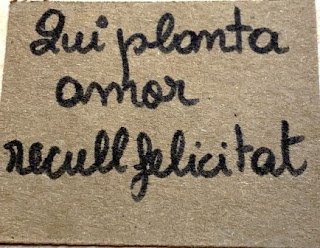 Qui planta
amor
recull felicitat